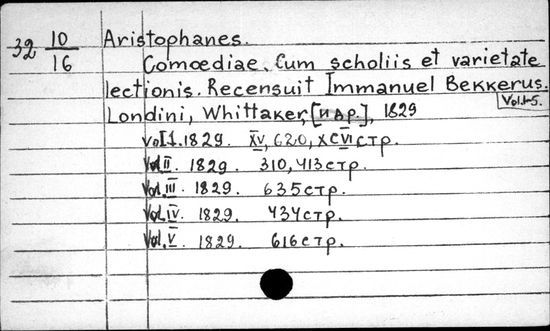 32 10/16 Aristophanes.
Comœdiae. Cum scholiis et varietate
lectionis. Recensuit Immanuel Bekkerus.
Vol.1-5.
Londini, Whittaker, [и др.], 1829
Vol I. 1829. XV, 620, XCVI стр.
Vol. II. 1829. 310, 413 стр.
Vol. III. 1829. 635 стр.
Vol. IV. 1829. 434 стр.
Vol. V. 1829. 616 стр.